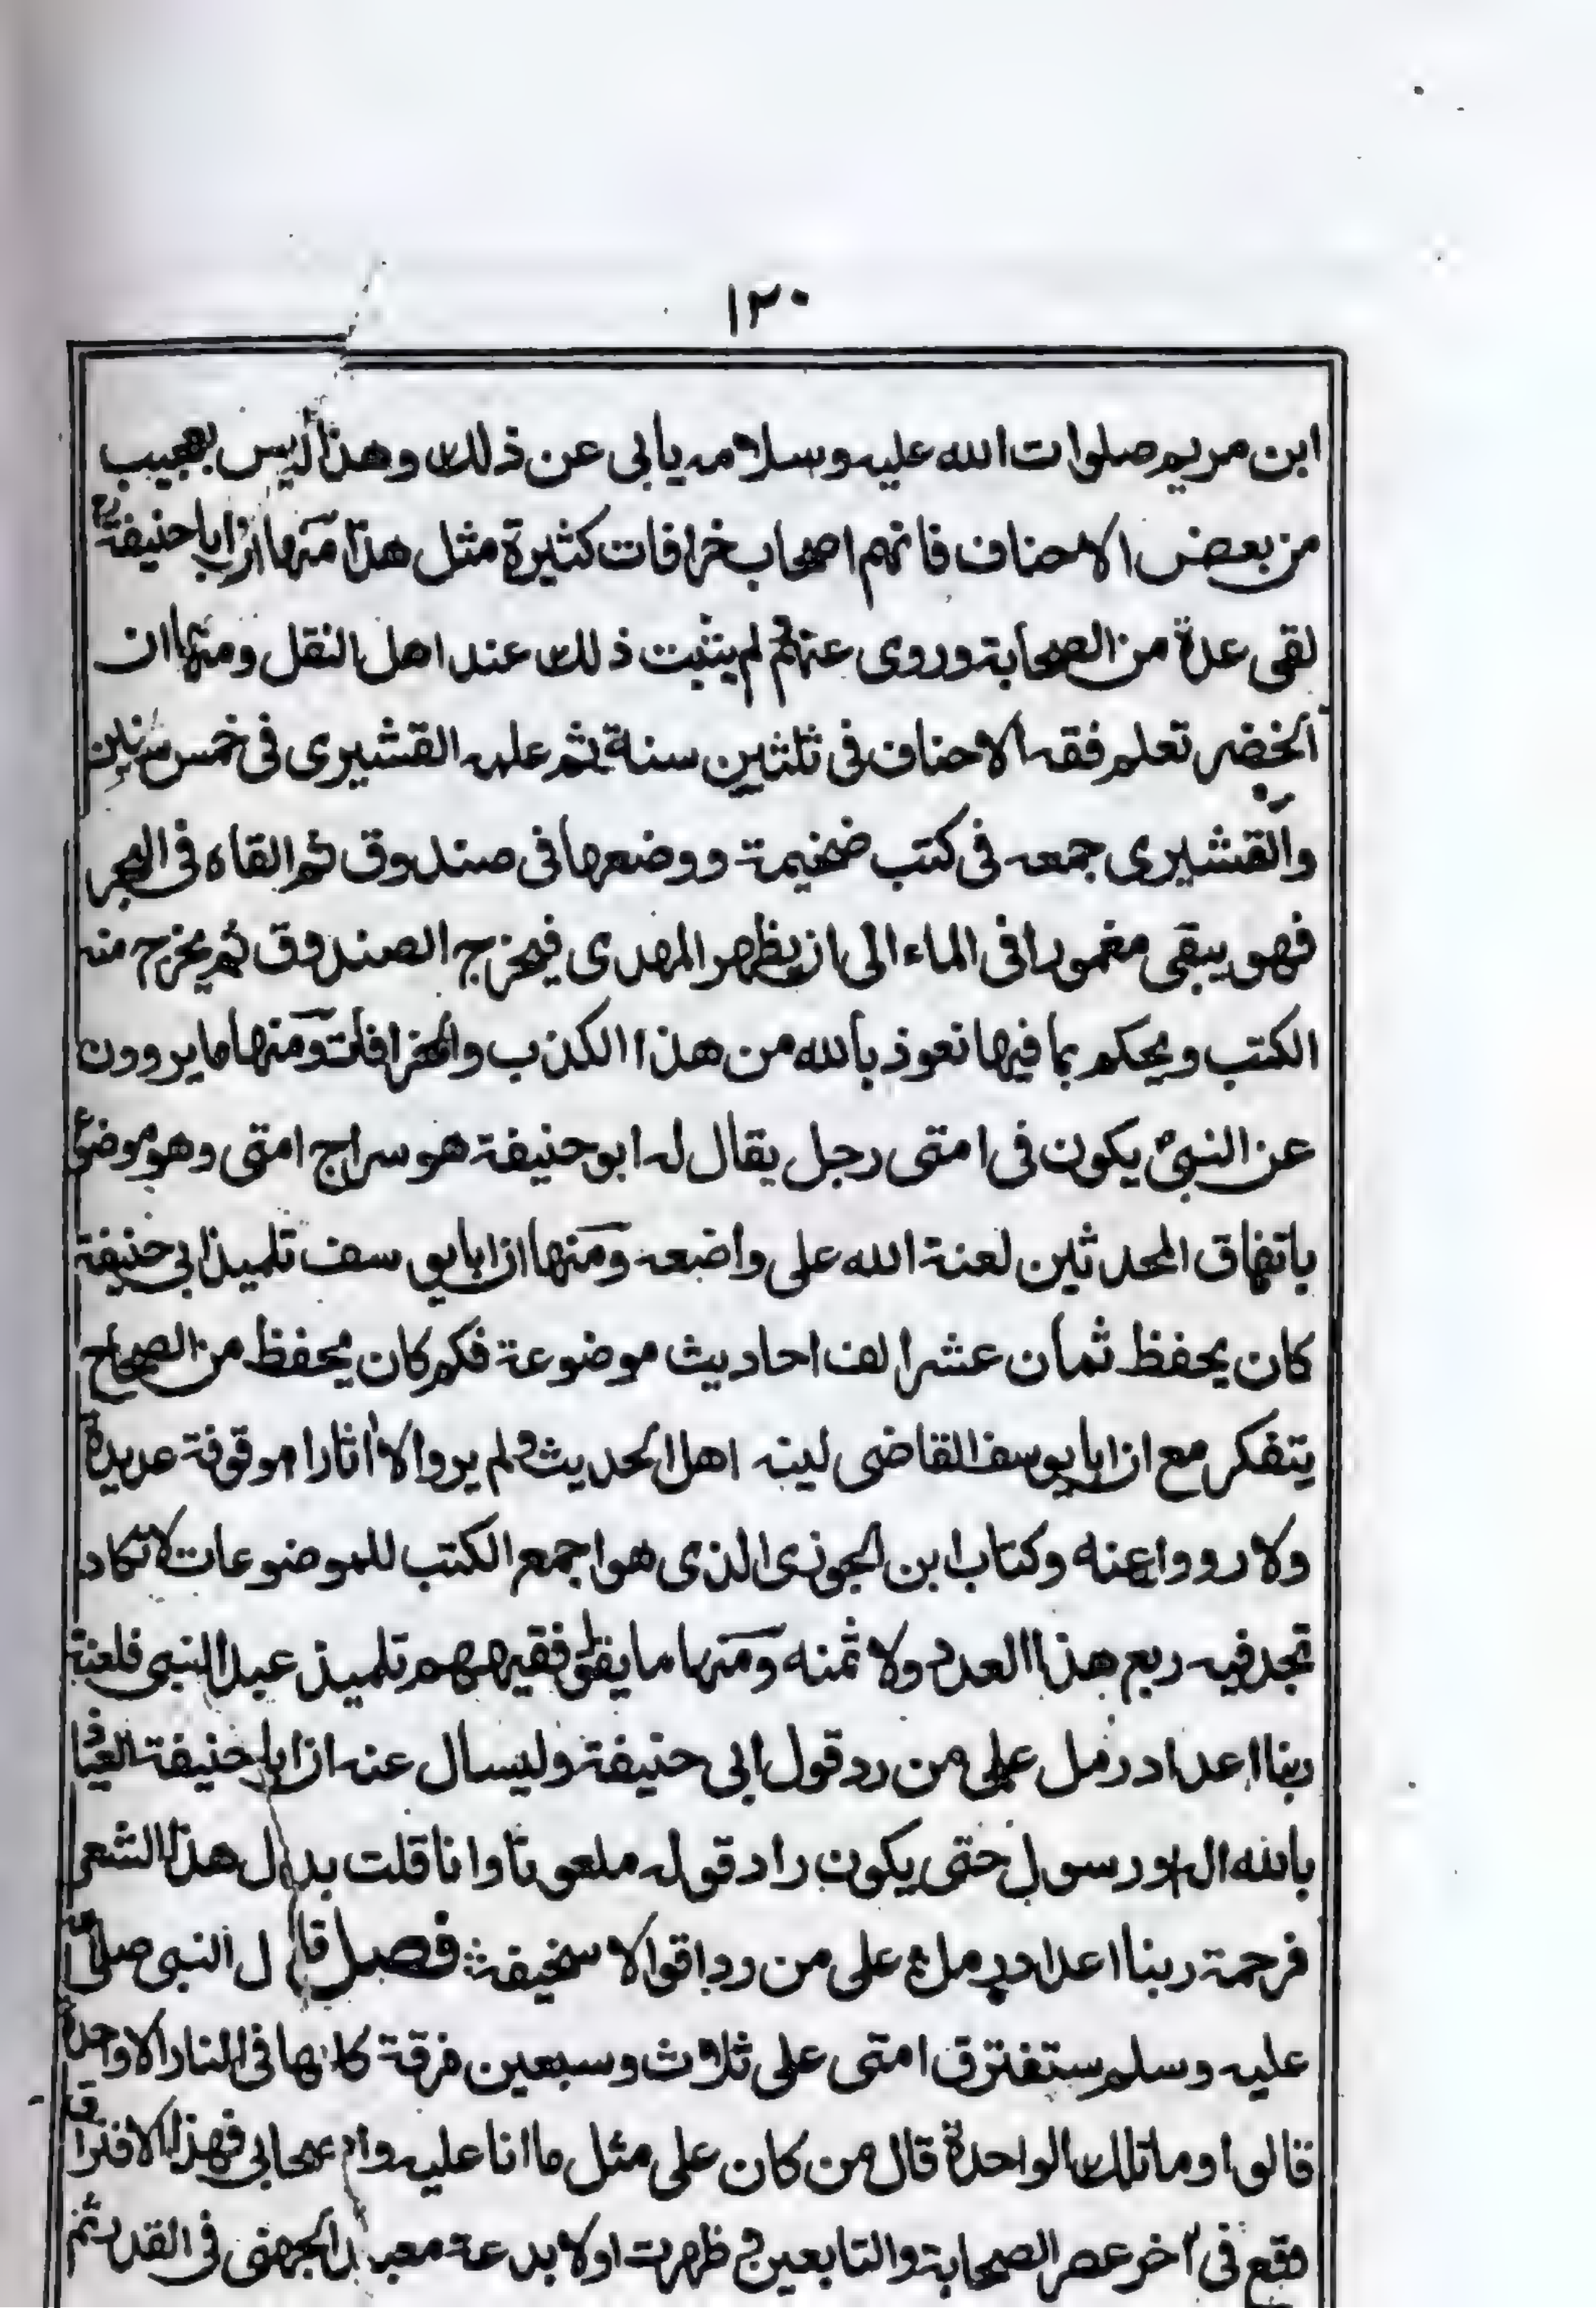 ١٢٠
ابن مريم صلوات الله عليه وسلامه يابى عن ذلك وهذا ليس بعجيب
من بعض الاحناف فانهم اصحاب خرافات كثيرة مثل هذا منها ان ابا حنيفة رح
لقى عدة من الصحابة وروى عنهم ولم يثبت ذلك عند اهل النقل ومنها ان
الخضر تعلم فقه الاحناف فى ثلثين سنة ثم علمه القشيرى فى خمس سنين
والقشيرى جمعه فى كتب ضخيمة ووضعها فى صندوق ثم القاه فى البحر
فهو يبقى مغمورا فى الماء الى ان يظهر المهدى فيخرج الصندوق ثم يخرج منه
الكتب ويحكم بما فيها نعوذ بالله من هذا الكذب والخرافات ومنها ما يروون
عن النبىؐ يكون فى امتى رجل يقال له ابو حنيفة هو سراج امتى وهو موضوع
باتفاق المحدثين لعنة الله على واضعه ومنها ان ابا يوسف تلميذ ابى حنيفة
كان يحفظ ثمان عشر الف احاديث موضوعة فكم كان يحفظ من الصحاح
يتفكر مع ان ابا يوسف القاضى لينه اهل الحديث ولم يرو الا أثارا موقوفة عديدة
ولا رووا عنه وكتاب ابن الجوزى الذى هو اجمع الكتب للموضوعات لا تكاد
تجد فيه ربع هذا العدد ولا ثمنه ومنها ما يقلق فقيههم تلميذ عبد النبى فلعنة
ربنا اعداد رمل على من رد قول ابى حنيفة وليسال عنه ان ابا حنيفة
بالله ال او رسول حتى يكون راد قوله ملعونا وانا قلت بدل هذا الشعر
فرحمة ربنا اعداد رمل ؞ على من رد اقوالا سخيفة ؞ فصل قال النبى صلى الله
عليه وسلم ستفترق امتى على ثلاث وسبعين فرقة كلها فى النار الا واحدة
قالوا وما تلك الواحدة قال من كان على مثل ما انا عليه واصحابى فهذا الافتراق
وقع فى آخر عصر الصحابة والتابعين وظهرت اولا بدعة معبد الجهنى فى القدر ثم